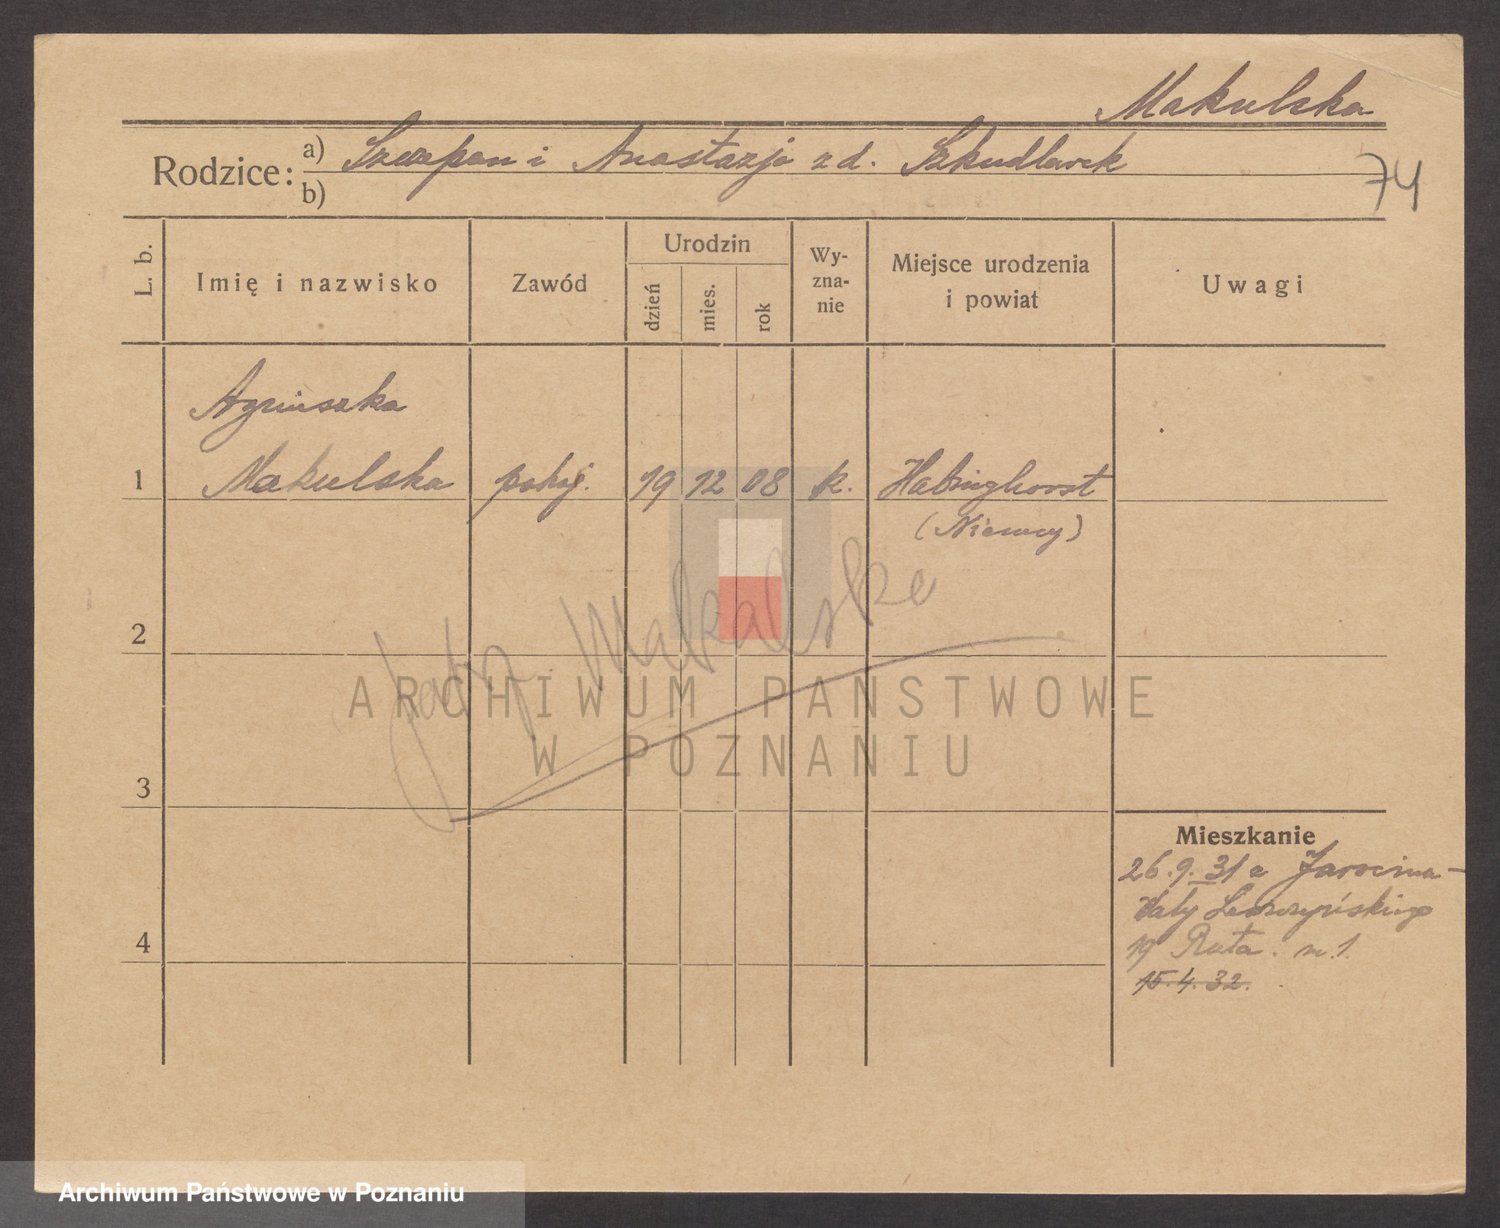 Makulska
Rodzice: a) Szczepan i Anastazja z d. Szkudlarek
b)
74
L. b.
Imię i nazwisko
Zawód
Urodzin
dzień
mies.
rok
Wy-
zna-
nie
Miejsce urodzenia
i powiat
Uwagi
Agnieszka
1 Makulska pokoj. 19 12 08 k. Habinghorst
(Niemcy)
2
Makulska
3
4
Mieszkanie
26.9.31 z Jarocina-
Wały Leszczyńskiego
19 Ruta. m.1.
15.4.32.
ARCHIWUM PAŃSTWOWE
W POZNANIU
Archiwum Państwowe w Poznaniu